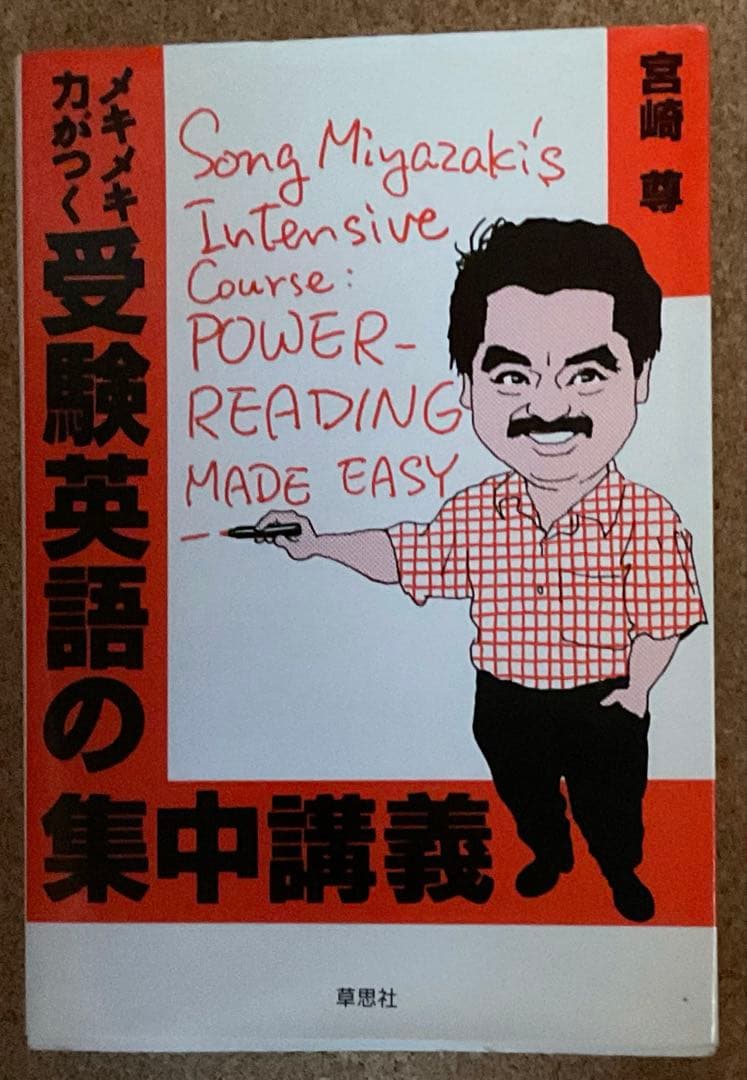 宮崎 尊
メキメキ
力がつく
受験英語の
集中講義
Song Miyazaki's
Intensive
Course:
POWER-
READING
MADE EASY
草思社